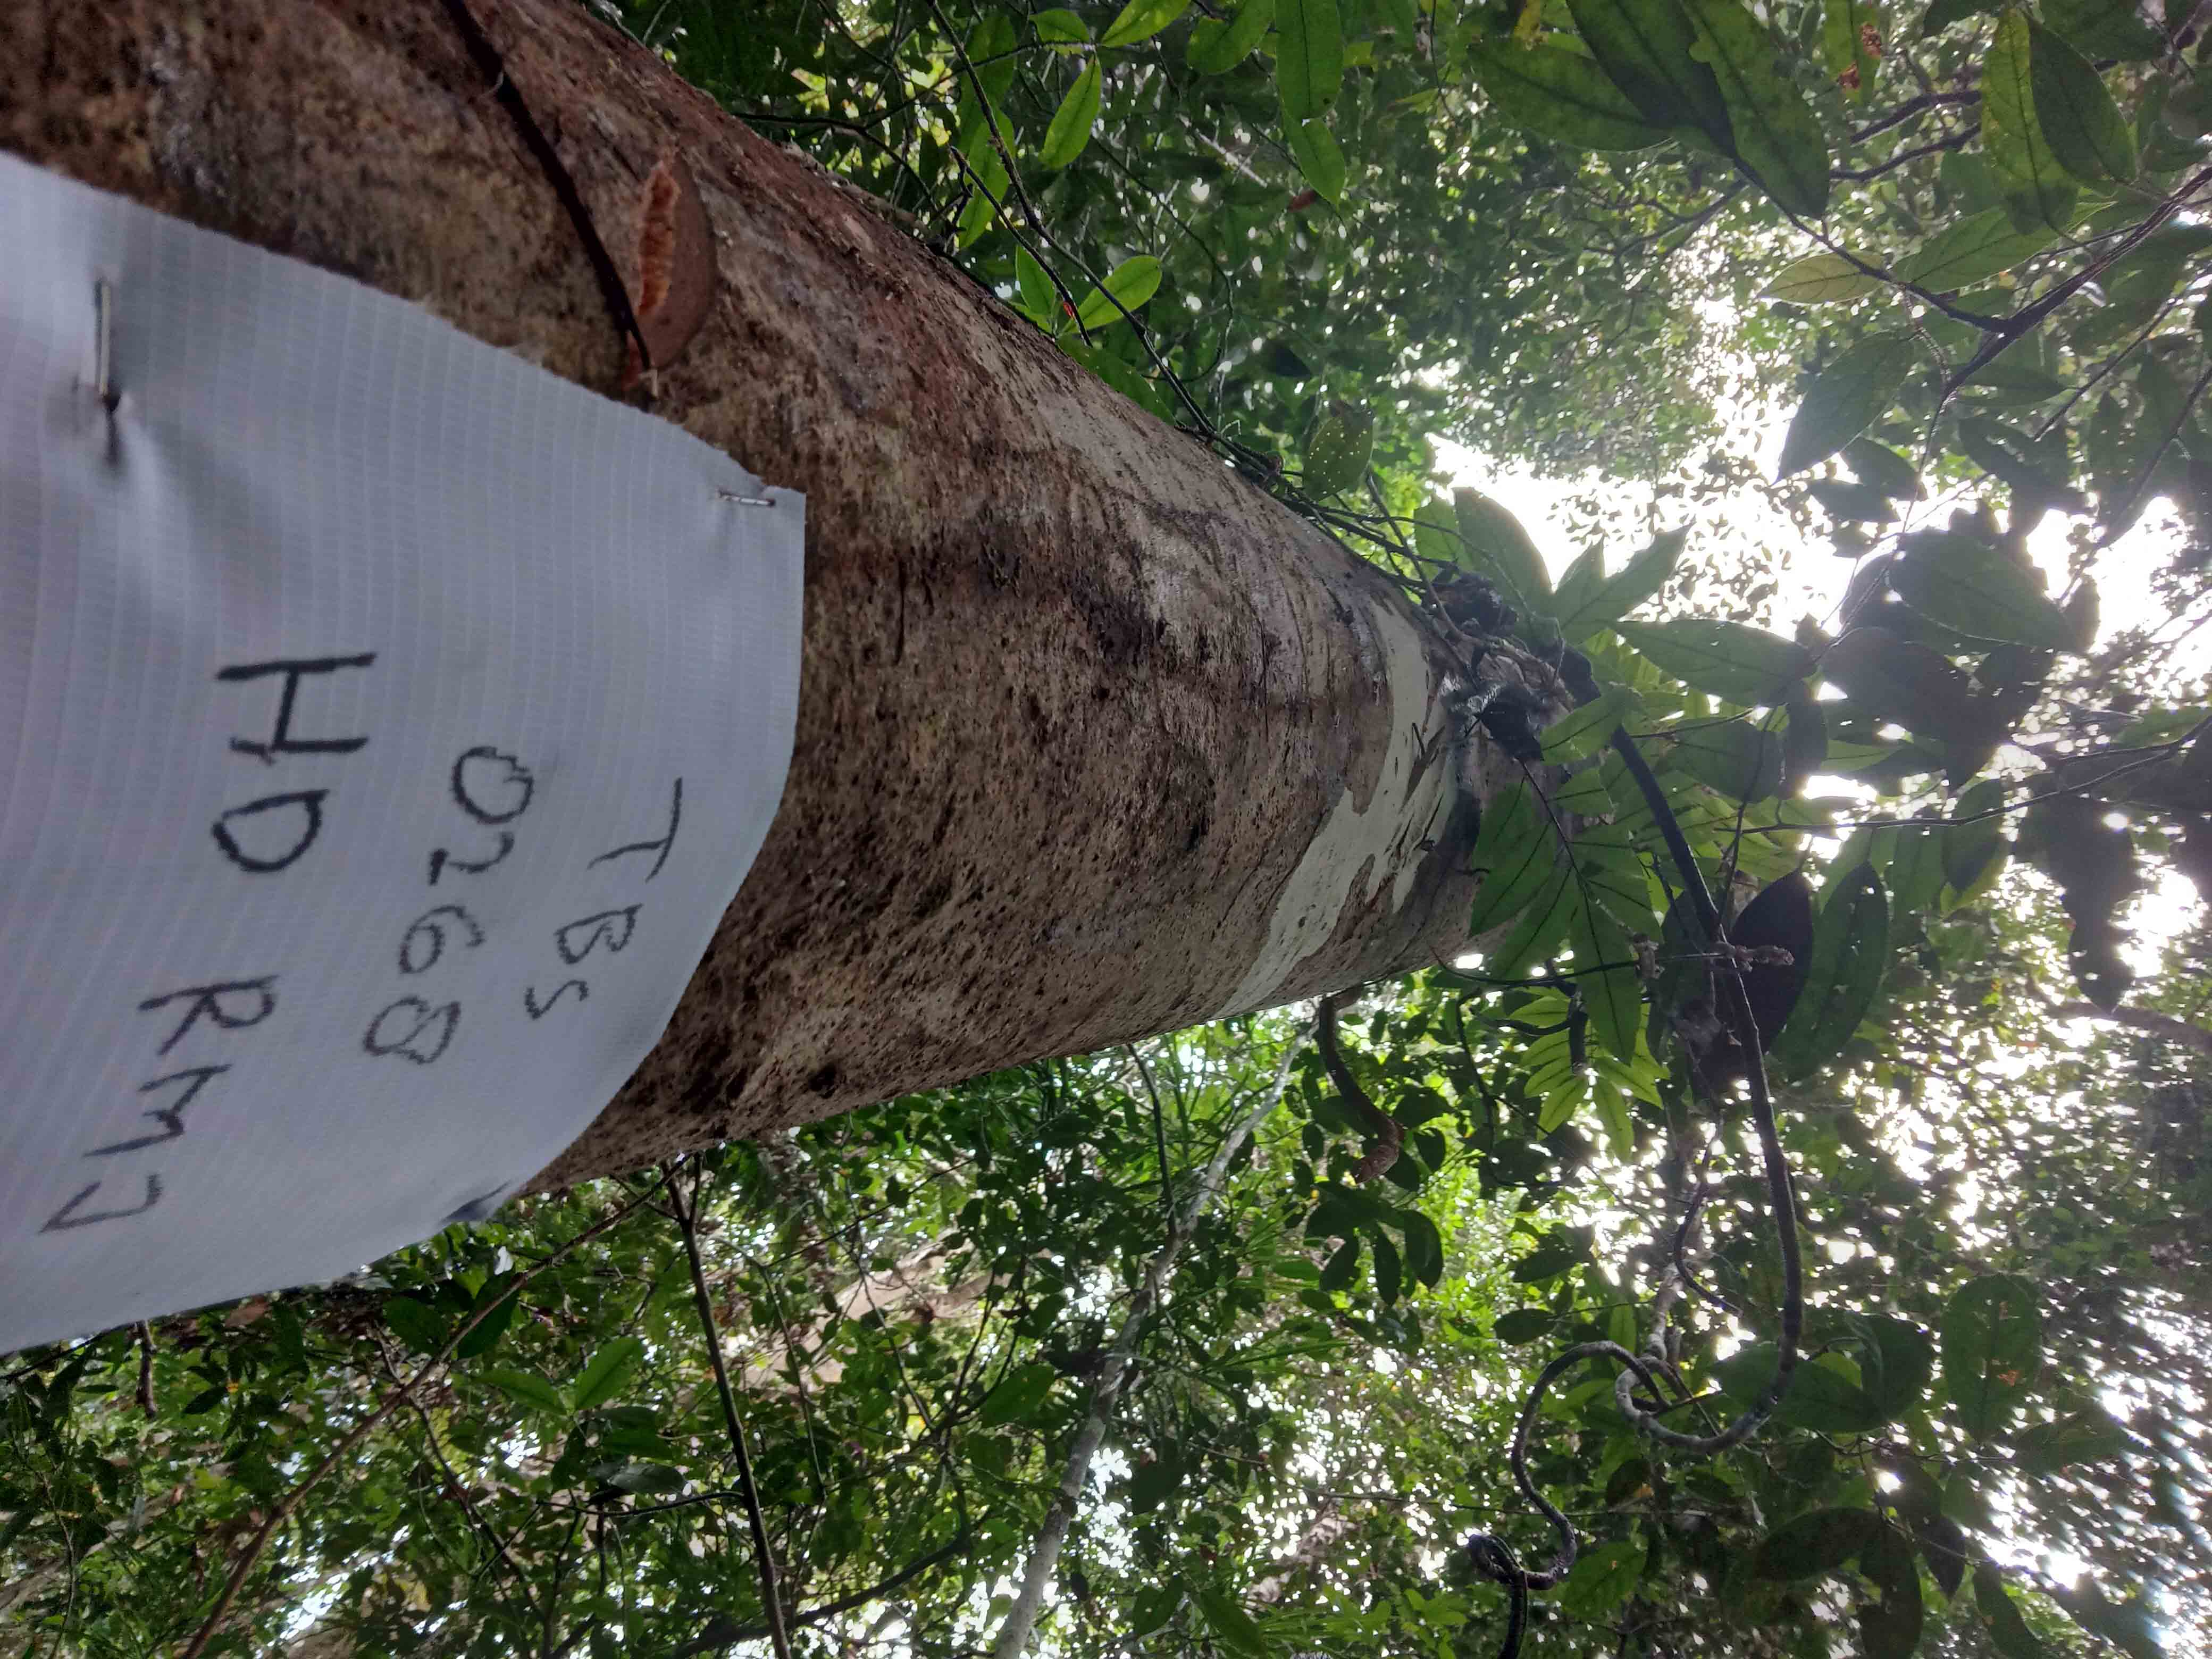 TBS
0268
HD RM7